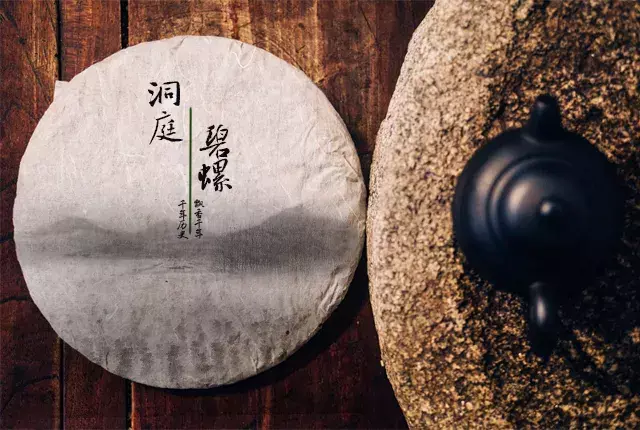 洞庭
碧螺
飘香千年
千年历史